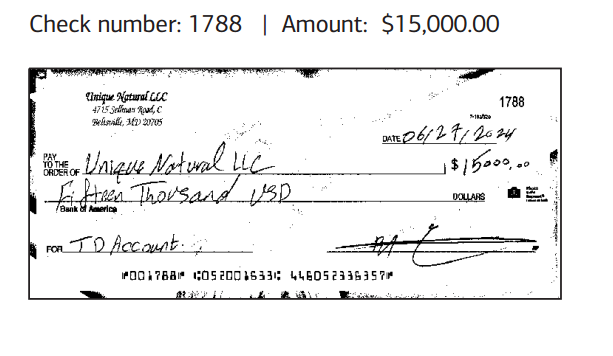 Check number: 1788 | Amount: $15,000.00
Unique Natural LLC
1788
4715 Sellman Road, C
Beltsville, MD 20705
DATE 06/27/2024
PAY
TO THE
ORDER OF Unique Natural LLC $15000.00
Fifteen Thousand USD DOLLARS
Bank of America
FOR TD Account
⑈001788⑈ ⑆052001633⑆ 446052336357⑈